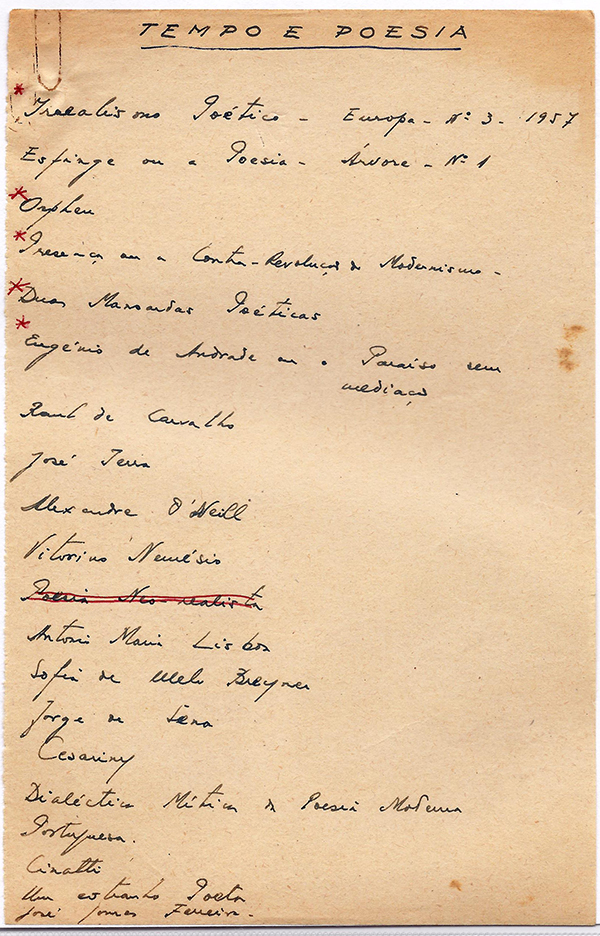 TEMPO E POESIA
Irrealismo Poético - Europa - Nº 3 - 1957
Esfinge ou a Poesia - Árvore - Nº 1
Orpheu
Presença ou a Contra-Revolução do Modernismo -
Duas Moradas Poéticas
Eugénio de Andrade ou o Paraíso sem
mediação
Raul de Carvalho
José Terra
Alexandre O'Neill
Vitorino Nemésio
Poesia Neo-realista
António Maria Lisboa
Sofia de Melo Breyner
Jorge de Sena
Cesariny
Dialéctica Mítica da Poesia Moderna
Portuguesa.
Cinatti
Um estranho Poeta
José Gomes Ferreira -